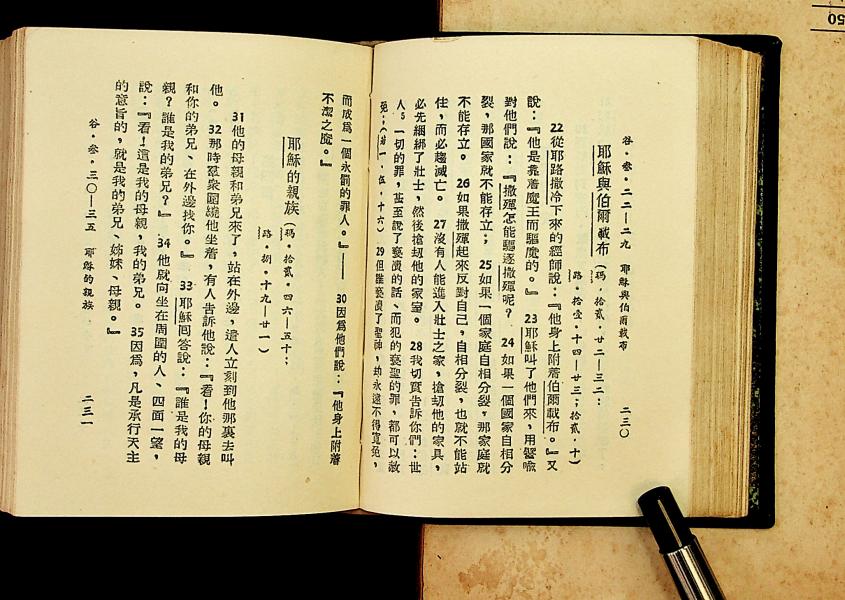 谷・叁・二二—二九　耶穌與伯爾載布　二三〇
耶穌與伯爾載布（瑪・拾貳・廿二—三二：
路・拾壹・十四—廿三；拾貳・十）
22從耶路撒冷下來的經師說：『他身上附著伯爾載布。』又
說：『他是靠着魔王而驅魔的。』 23耶穌叫了他們來，用譬喻
對他們說：『撒殫怎能驅逐撒殫呢？ 24如果一個國家自相分
裂，那國家就不能存立； 25如果一個家庭自相分裂，那家庭就
不能存立。 26如果撒殫起來反對自己，自相分裂，也就不能站
住，而必趨滅亡。 27沒有人能進入壯士之家，搶刼他的家具，
必先綑綁了壯士，然後搶刼他的家室。 28我切實告訴你們：世
人一切的罪，甚至說了褻瀆的話、而犯的褻聖的罪，都可以赦
免；（若一・伍・十六） 29但誰褻瀆了聖神，却永遠不得寬免，
而成爲一個永罰的罪人。』—— 30因爲他們說：『他身上附着
不潔之魔。』
耶穌的親族（瑪・拾貳・四六—五十；
路・捌・十九—廿一）
31他的母親和弟兄來了，站在外邊，遣人立刻到他那裏去叫
他。 32那時羣衆圍繞他坐着，有人告訴他說：『看！你的母親
和你的弟兄、在外邊找你。』 33耶穌囘答說：『誰是我的母
親？誰是我的弟兄？』 34他就向坐在周圍的人、四面一望，
說：『看！這是我的母親，我的弟兄。 35因爲，凡是承行天主
的意旨的，就是我的弟兄、姊妹、母親。』
谷・叁・三〇—三五　耶穌的親族　二三一
50